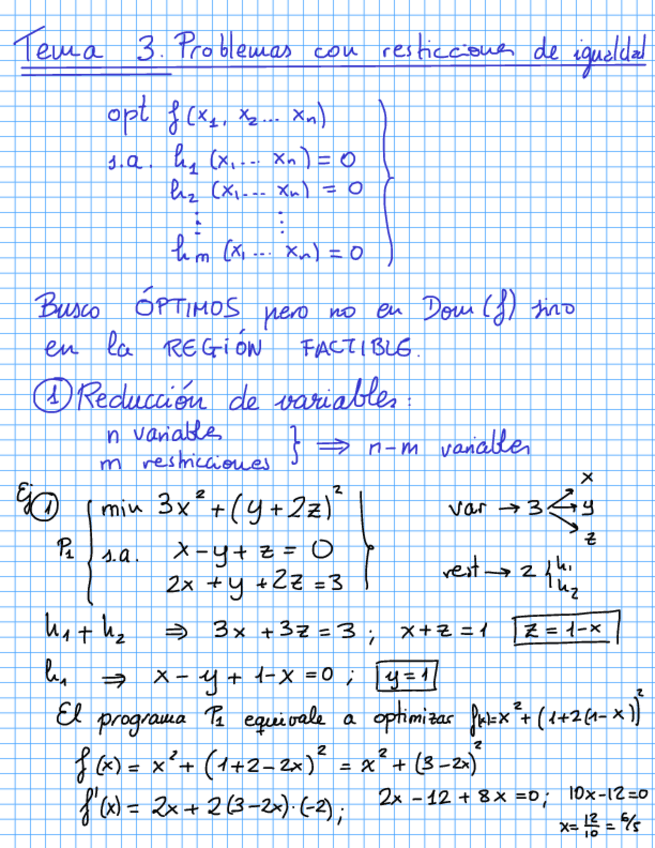 Tema 3. Problemas con resticciones de igualdad
opt f(x₁, x₂... xₙ)
s.a. h₁ (x₁... xₙ) = 0
h₂ (x₁... xₙ) = 0
⋮ ⋮
hm (x₁... xₙ) = 0
Busco ÓPTIMOS pero no en Dom(f) sino
en la REGIÓN FACTIBLE.
① Reducción de variables:
n variables
m restricciones } ⇒ n-m variables
Ej ① min 3x² + (y + 2z)²
P₁ s.a. x - y + z = 0
2x + y + 2z = 3
var → 3 x y z
rest → 2 h₁ h₂
h₁ + h₂ ⇒ 3x + 3z = 3 ; x + z = 1 z = 1-x
h₁ ⇒ x - y + 1 - x = 0 ; y = 1
El programa P₁ equivale a optimizar f(x) = x² + (1 + 2(1 - x))²
f(x) = x² + (1 + 2 - 2x)² = x² + (3 - 2x)²
f'(x) = 2x + 2(3 - 2x)·(-2) ; 2x - 12 + 8x = 0 ; 10x - 12 = 0
x = 12/10 = 6/5